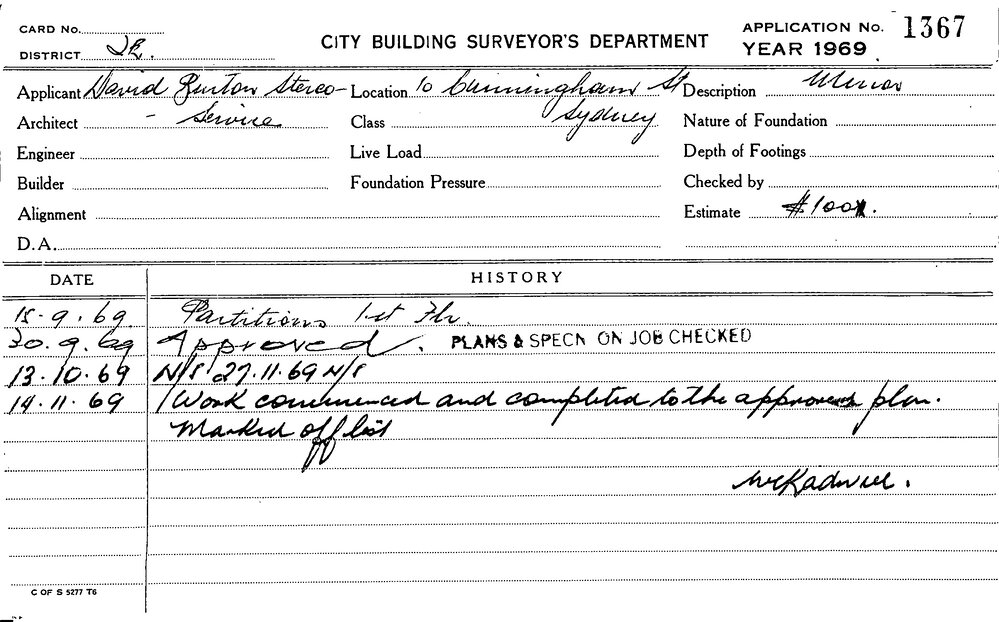 CARD No.
DISTRICT
CITY BUILDING SURVEYOR'S DEPARTMENT
APPLICATION No. 1367
YEAR 1969
Applicant David Burton Stereo- Location 10 Cunningham St Description Minor
Architect - Service Class Sydney Nature of Foundation
Engineer Live Load Depth of Footings
Builder Foundation Pressure Checked by
Alignment Estimate $100
D.A.
DATE HISTORY
15.9.69 Partitions 1st Flr.
30.9.69 Approved. PLANS & SPECN ON JOB CHECKED
13.10.69 N/S 27.11.69 N/S
14.11.69 Work commenced and completed to the approved plan.
Marked off list
C OF S 5277 T6